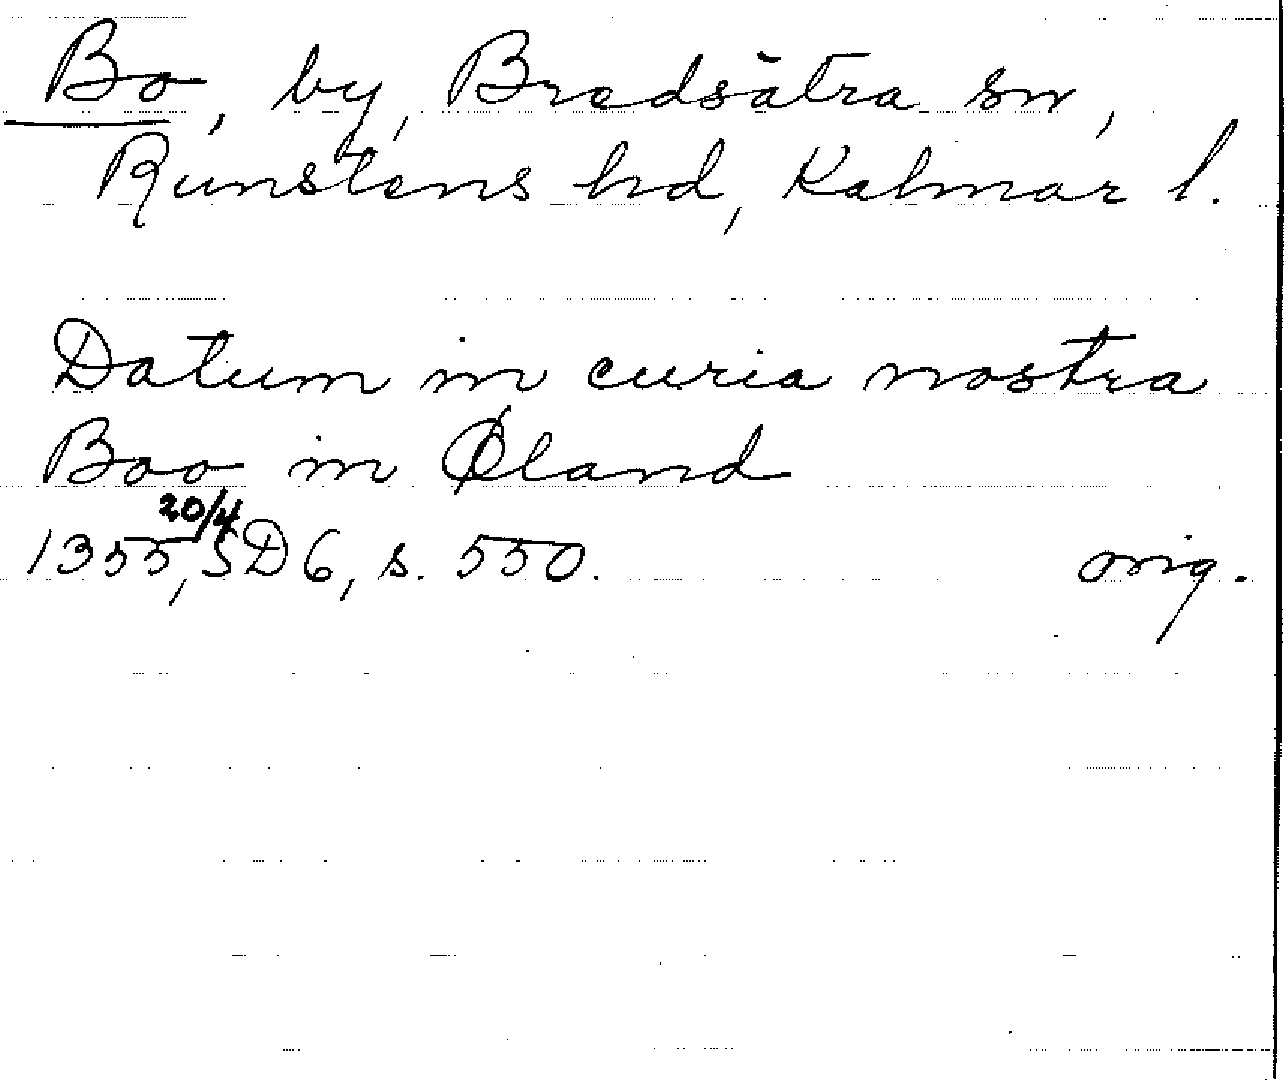 Bo, by, Bredsätra sn,
Runstens hd, Kalmar l.
Datum in curia nostra
Boo in Øland
1355 20/4, SD 6, s. 550. orig.